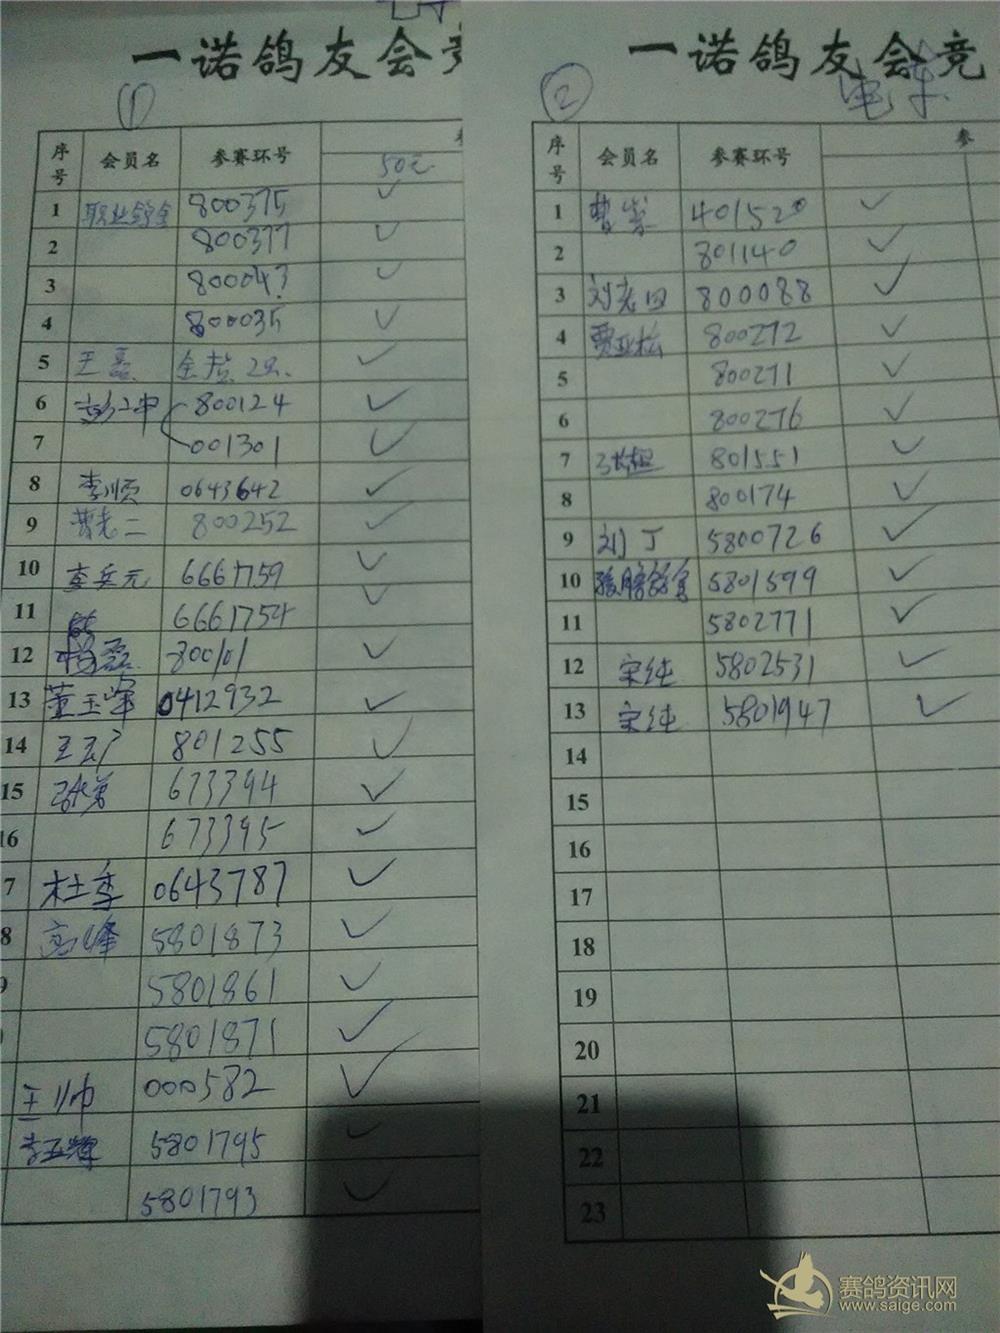 一诺鸽友会
①
序号 会员名 参赛环号
50元
1 800375 ✓
2 800377 ✓
3 800043 ✓
4 800035 ✓
5 王磊 ✓
6 800124 ✓
7 001301 ✓
8 李顺 0643642 ✓
9 曹老二 800252 ✓
10 李兵元 6661759 ✓
11 6661754 ✓
12 800101 ✓
13 董玉峰 0412932 ✓
14 801255 ✓
15 673394 ✓
16 673395 ✓
7 杜季 0643787 ✓
8 高峰 5801873 ✓
9 5801861 ✓
5801871 ✓
王帅 000582 ✓
5801795 ✓
5801793 ✓
一诺鸽友会竞
②
序号 会员名 参赛环号 参
1 401520 ✓
2 801140 ✓
3 刘老四 800088 ✓
4 贾亚松 800272 ✓
5 800271 ✓
6 800276 ✓
7 801551 ✓
8 800174 ✓
9 刘丁 5800726 ✓
10 5801599 ✓
11 5802771 ✓
12 宋纯 5802531 ✓
13 宋纯 5801947 ✓
14
15
16
17
18
19
20
21
22
23
赛鸽资讯网
www.saige.com